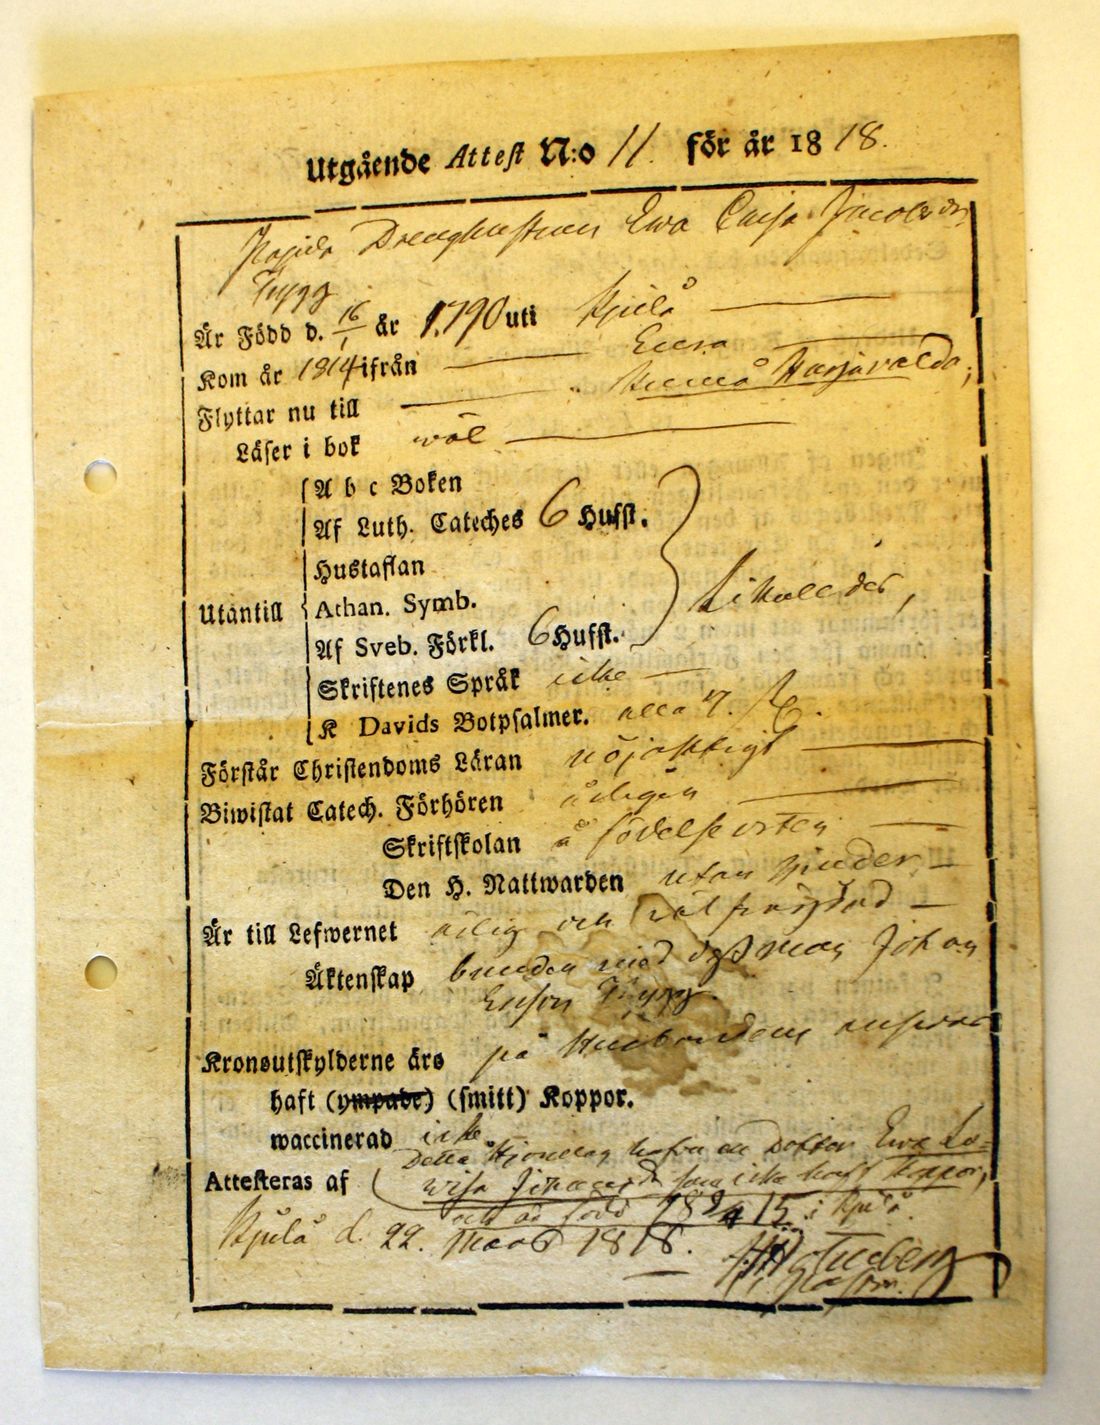 Utgående Attest N:o 11. för år 1818.
Ewa Cajsa Jacobsdr
Trygg
Är Född d. 16/1 år 1790 uti Kjulå
Kom år 1814 ifrån Eura
Flyttar nu till Kumå Harjavalda,
Läser i bok wäl
A b c Boken
Af Luth. Cateches 6 Hufst.
Hustaflan
Utantill
Athan. Symb.
Af Sveb. Förkl. 6 Hufst.
Skriftenes Språk icke
K Davids Botpsalmer. alla 7.
Förstår Christendoms Läran nöjaktligt
Biwistat Catech. Förhören årligen
Skriftskolan å födelseorten
Den H. Nattwarden utan hinder
Är till Lefwernet ärlig och väl frägdad
Äktenskap bunden med Johan
Trygg.
Kronoutskylderne äro på Husbondens answar
haft (ympade) (smitt) Koppor.
waccinerad icke
Detta Hjonelag hafva en Dotter Ewa Lo=
Attesteras af wisa som icke haft koppor,
och är född 18 15 i Kjulå.
Kjulå d. 22. Mars 1818.